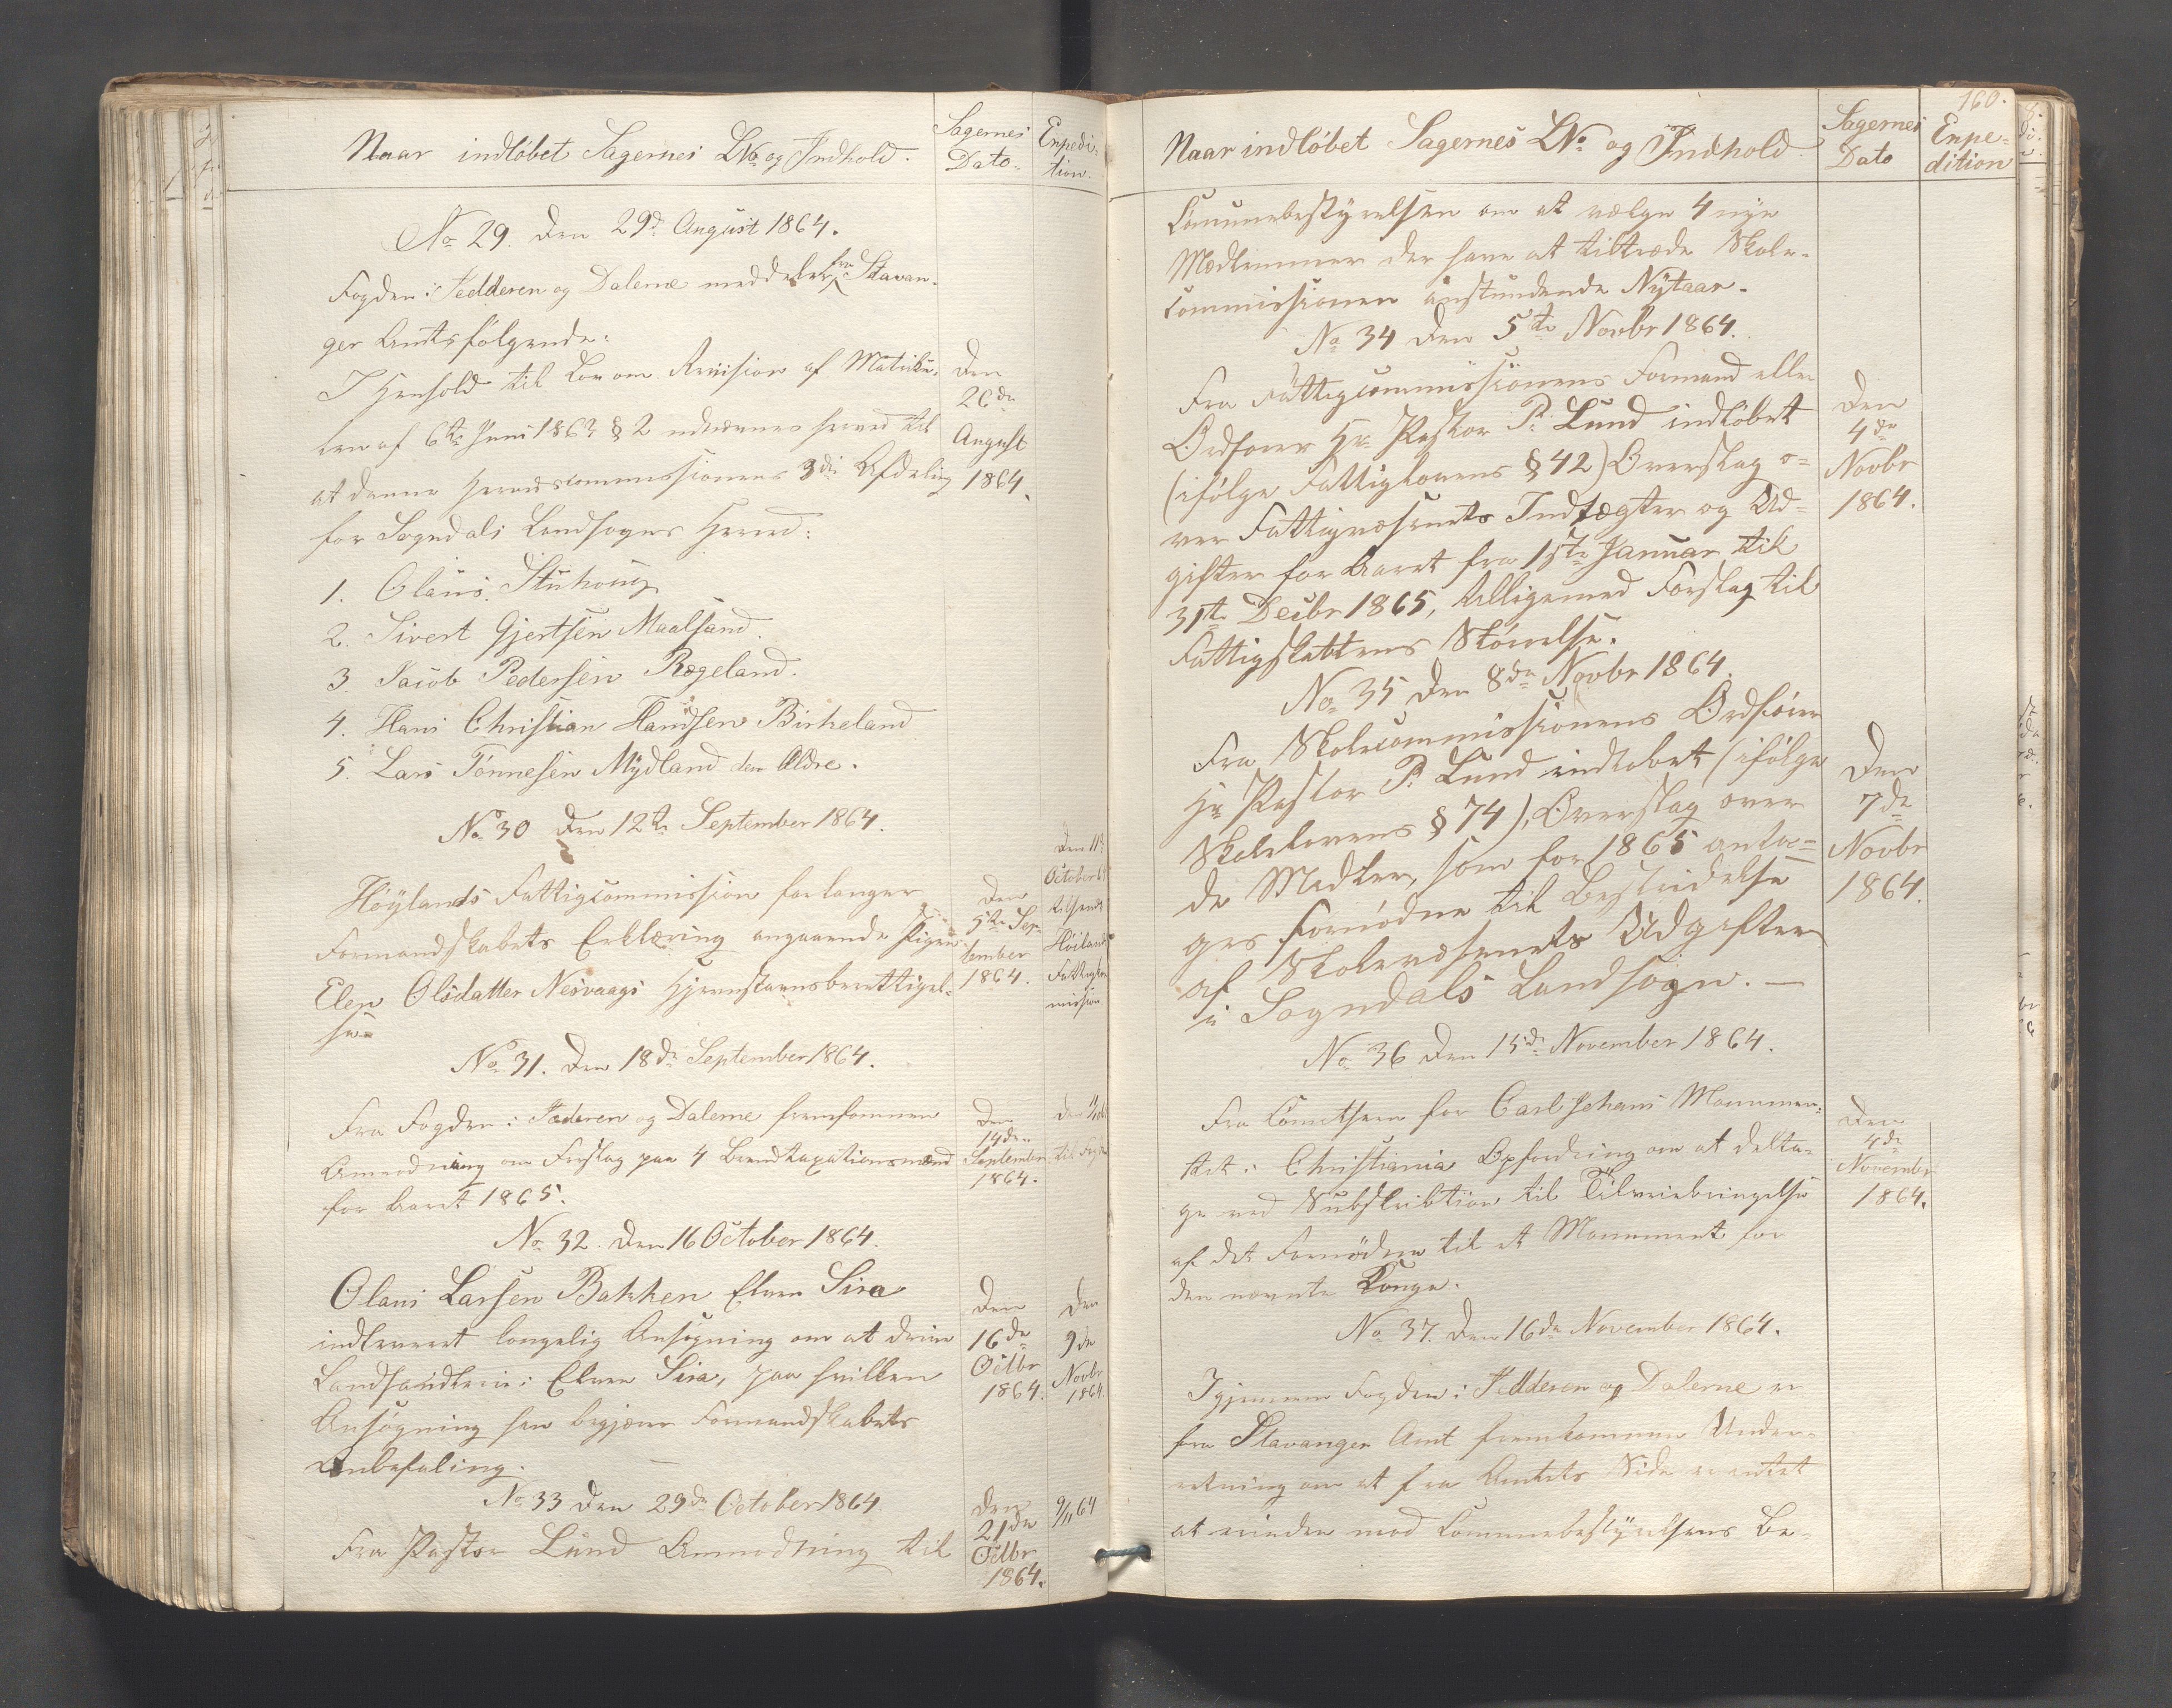 Naar indløbet Sagernes LNo og Indhold.
Sagernes Dato.
Expedi-
tion.
No 29. Den 29de August 1864.
Fogden i Jedderen og Dalerne meddeler fra Stavan-
ger Amt følgende:
I Henhold til Lov om Revision af Matriku-
len af 6te Juni 1863 § 2 udnævnes herved til
at danne Herredscommissionens 3die Afdeling
for Sogndals Landsogns Herred:
Den
26de
August
1864.
1. Olaus Stuhoug
2. Sivert Gjertsen Maalsand.
3. Jacob Pedersen Rægeland.
4. Hans Christian Handsen Birkeland
5. Lars Tønnesen Mydland den Ældre.
No 30 Den 12te September 1864.
Høylands Fattigcommission forlanger
Formandskabets Erklæring angaaende Pigen
Elen Olsdatter Nesvaags Hjemstavnsberettigel-
se
Den
5te Sep-
tember
1864.
Den 11te
October 64
tilsendt
Høilands
Fattigkom
mission
No 31. Den 18de September 1864.
Fra Fogden i Jæderen og Dalerne fremkommen
Anmodning om Forslag paa 4 Brandtaxationsmænd
for Aaret 1865.
Den
14de
September
1864.
til Fogden
No 32. Den 16 October 1864.
Olaus Larsen Bakken Elven Sira
indleveret kongelig Ansøgning om at drive
Landhandleri i Elven Sira, paa hvilken
Ansøgning han begjærer Formandskabets
Anbefaling.
Den
16de
Octbr
1864.
Den
9de
Novbr
1864.
No 33 Den 23de October 1864
Fra Pastor Lund Anmodning til
Den
21de
Octbr
1864.
9/11 64
160.
Naar indløbet Sagernes LNo og Indhold
Sagernes
Dato
Expe-
dition
Communebestyrelsen om at vælge 4 nye
Medlemmer der have at tiltræde Skole-
commissionen anstundende Nytaar.
No 34 Den 5te Novbr 1864.
Fra Fattigcommissionens Formand eller
Ordfører Hr Pastor P. Lund indløbet
(ifølge Fattiglovens § 42) Overslag o-
ver Fattigvæsenets Indtægter og Ud-
gifter for Aaret fra 1ste Januar til
31te Decbr 1865, tilligemed Forslag til
Fattigskattens Størrelse.
Den
4de
Novbr
1864.
No 35 Den 8de Novbr 1864.
Fra Skolecommissionens Ordfører
Hr Pastor P. Lund indløbet (ifølge
Skolelovens § 74), Overslag over
de Midler, som for 1865 anta-
ges fornødne til Bestridelse
af Skolevæsenets Udgifter
i Sogndals Landsogn. —
Den
7de
Novbr
1864.
No 36 Den 15de November 1864.
Fra Comiteen for Carl Johans Monumen-
tet i Christiania Opfordring om at delta-
ge ved Subskribtion til Tilveiebringelse
af det Fornødne til et Monument for
den nævnte Konge.
Den
4de
November
1864.
No 37. Den 16de November 1864.
Igjennem Fogden i Jedderen og Dalerne er
fra Stavanger Amt fremkommen Under-
retning om at fra Amtets Side er intet
at erindre mod Communebestyrelsens Be-